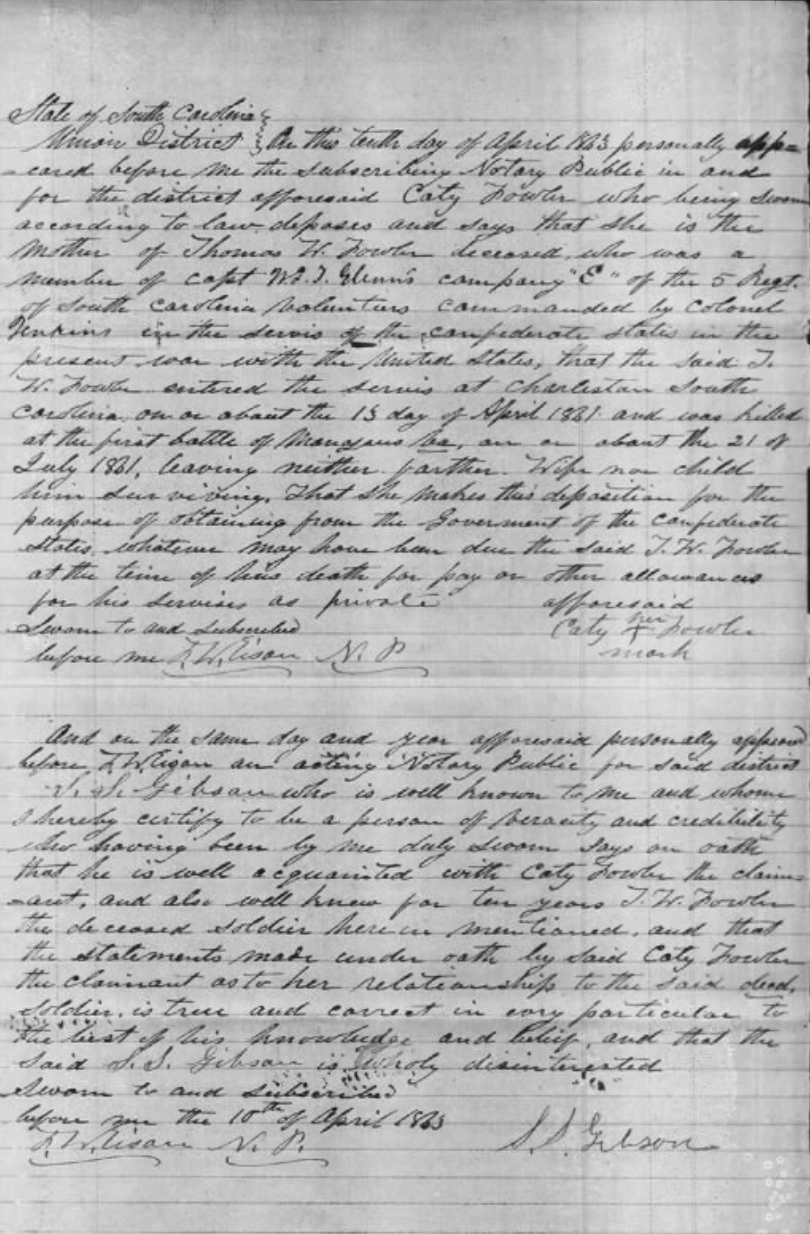 State of South Carolina }
Union District } On this tenth day of April 1863 personally app=
=eared before me the subscribing Notary Public in and
for the district afforesaid Caty Fowler who being sworn
according to law, deposes and says that she is the
mother of Thomas W. Fowler deceased, who was a
member of capt W. J. Glenn's company "E" of the 5 Regt.
of South Carolina Volunteers commanded by Colonel
Jenkins in the servis of the confederate states in the
present war with the United States, that the said T.
W. Fowler entered the servis at Charleston South
Carolina on or about the 13 day of April 1861 and was killed
at the first battle of Manasaus Va, on or about the 21 of
July 1861, leaving neither farther Wife nor child
him surviving. That she makes this deposition for the
purpose of obtaining from the Goverment of the confederate
States, whatever may have been due the said T. W. Fowler
at the time of his death for pay or other allowances
for his servises as private afforesaid
Sworn to and subscribed Caty her + Fowler
before me N. P mark
And on the same day and year afforesaid personally appeared
before an acting Notary Public for said district
S. S. Gibson who is well known to me and whom
I hereby certify to be a person of veracity and credibility
who having been by me duly sworn says on oath
that he is well acquainted with Caty Fowler the claim=
=ant, and also well knew for ten years T. W. Fowler
the deceased soldier herein mentioned, and that
the statements made under oath by said Caty Fowler
the claimant as to her relationship to the said decd,
soldier, is true and correct in evry particular to
the best of his knowledge and belief, and that the
said S. S. Gibson is wholy disinterested
Sworn to and subscribed
before me the 10th of April 1863
N. P. S. S. Gibson